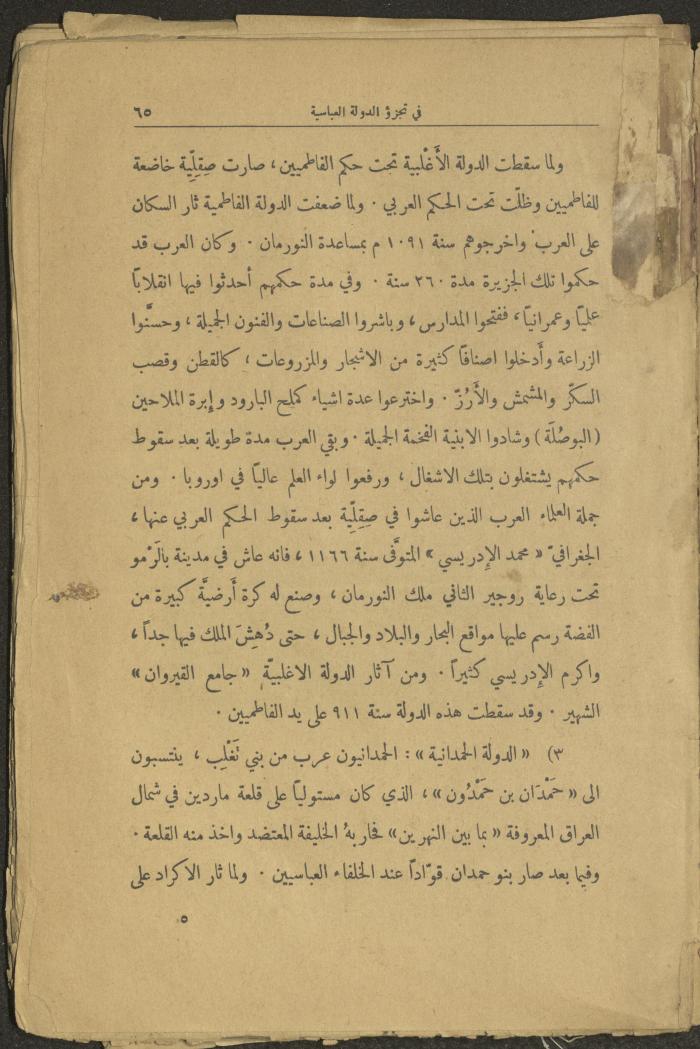 في تجزؤ الدولة العباسية ٦٥
ولما سقطت الدولة الأَغْلبية تحت حكم الفاطميين ، صارت صِقِلِّية خاضعة
للفاطميين وظلّت تحت الحكم العربي . ولما ضعفت الدولة الفاطمية ثار السكان
على العرب واخرجوهم سنة ١٠٩١ م بمساعدة النورمان . وكان العرب قد
حكموا تلك الجزيرة مدة ٢٦٠ سنة . وفي مدة حكمهم أحدثوا فيها انقلاباً
علميّاً وعمرانيّاً ، ففتحوا المدارس ، وباشروا الصناعات والفنون الجميلة ، وحسَّنوا
الزراعة وأَدخلوا اصنافاً كثيرة من الاشجار والمزروعات ، كالقطن وقصب
السكّر والمشمش والأَرُزّ . واخترعوا عدة اشياء كملح البارود وإِبرة الملاحين
( البوصُلَة ) وشادوا الابنية الفخمة الجميلة . وبقي العرب مدة طويلة بعد سقوط
حكمهم يشتغلون بتلك الاشغال ، ورفعوا لواء العلم عالياً في اوروبا . ومن
جملة العلماء العرب الذين عاشوا في صِقِلِّية بعد سقوط الحكم العربي عنها ،
الجغرافيّ « محمد الإِدريسي » المتوفَّى سنة ١١٦٦ ، فانه عاش في مدينة بالَرْمو
تحت رعاية روجير الثاني ملك النورمان ، وصنع له كرة أَرضيَّة كبيرة من
الفضة رسم عليها مواقع البحار والبلاد والجبال ، حتى دُهِشَ الملك فيها جداً ،
واكرم الإِدريسي كثيراً . ومن آثار الدولة الاغلبيّة « جامع القيروان »
الشهير . وقد سقطت هذه الدولة سنة ٩١١ على يد الفاطميين .
٣) « الدولة الحمدانية » : الحمدانيون عرب من بني تَغْلِب ، ينتسبون
الى « حَمْدَان بن حَمْدُون » ، الذي كان مستولياً على قلعة ماردين في شمال
العراق المعروفة « بما بين النهرين » فحاربهُ الخليفة المعتضد واخذ منه القلعة .
وفيما بعد صار بنو حمدان قوّاداً عند الخلفاء العباسيين . ولما ثار الاكراد على
٥